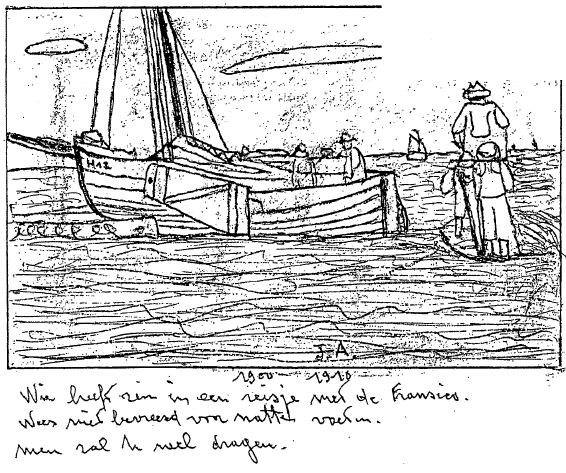 H12
J.A.
1900 - 1910
Wie heeft zin in een reisje met de Fransico.
Wees niet bevreesd voor natte voeten.
men zal U wel dragen.